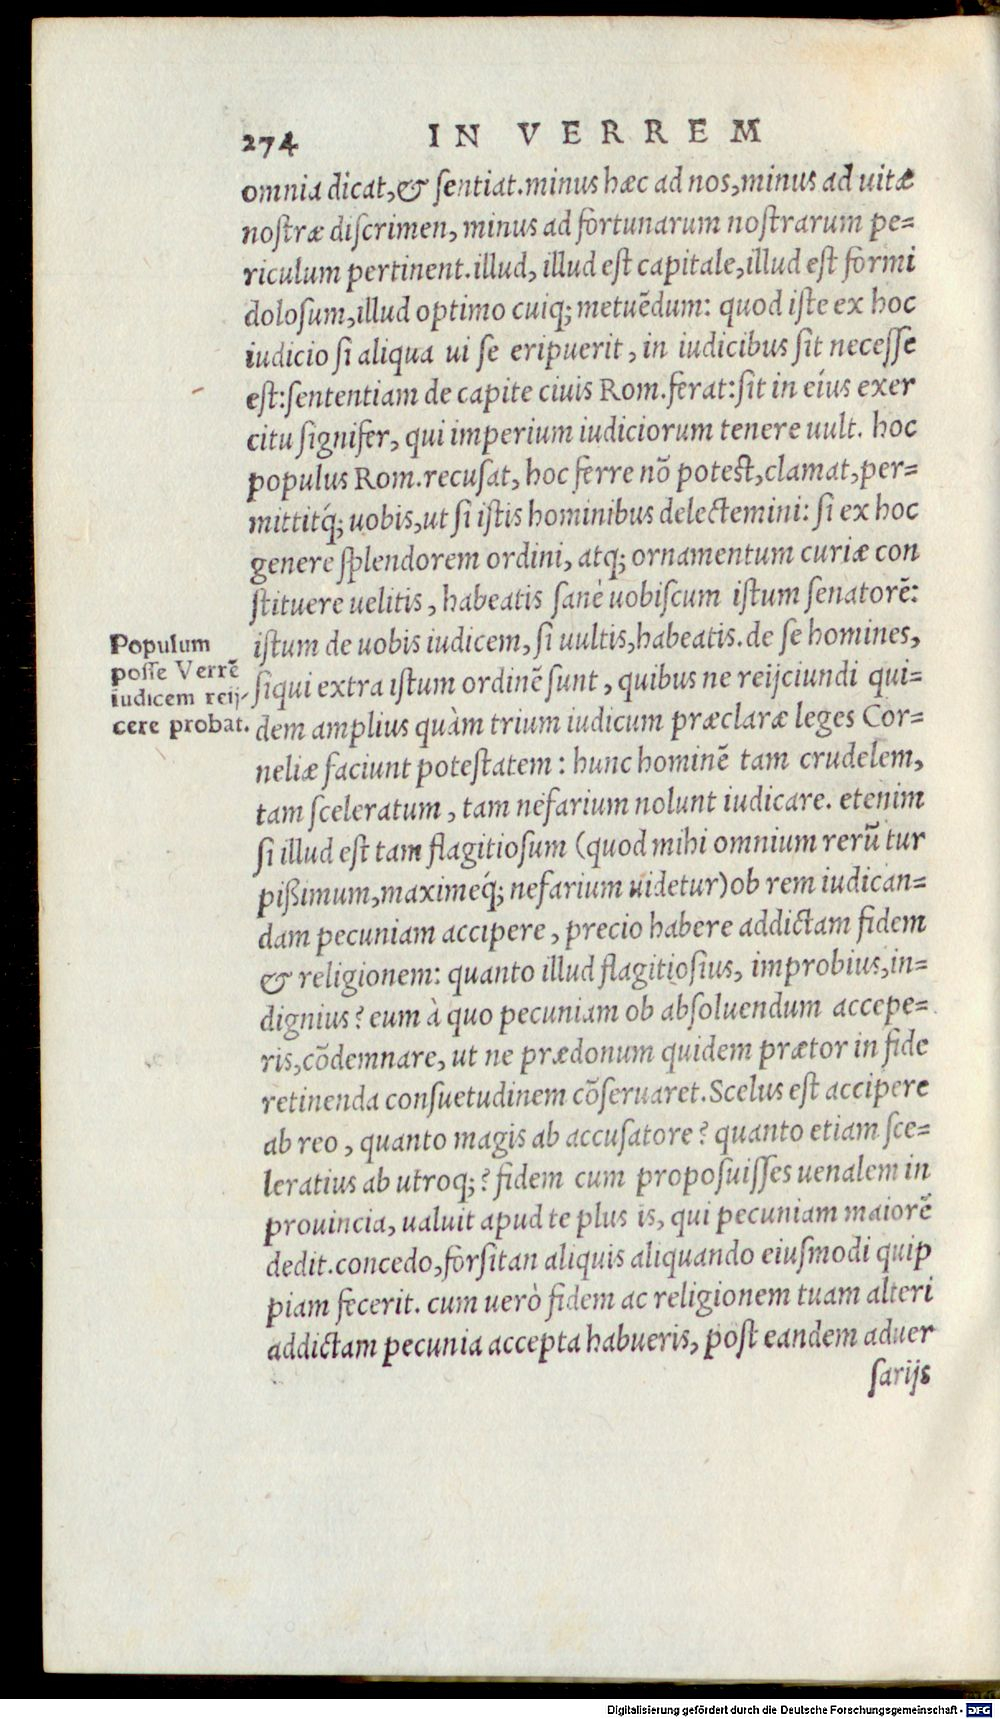 274 IN VERREM
omnia dicat,& sentiat.minus hæc ad nos,minus ad uitæ
nostræ discrimen, minus ad fortunarum nostrarum pe=
riculum pertinent.illud, illud est capitale,illud est formi
dolosum,illud optimo cuiq; metuẽdum: quod iste ex hoc
iudicio si aliqua ui se eripuerit, in iudicibus sit necesse
est:sententiam de capite ciuis Rom.ferat:sit in eíus exer
citu signifer, qui imperium iudiciorum tenere uult. hoc
populus Rom.recusat, hoc ferre nõ potest,clamat,per=
mittitq́; uobis,ut si istis hominibus delectemini: si ex hoc
genere splendorem ordini, atq; ornamentum curiæ con
stituere uelitis, habeatis sanè uobiscum istum senatorẽ:
istum de uobis iudicem, si uultis,habeatis. de se homines,
siqui extra istum ordinẽ sunt, quibus ne reijciundi qui=
dem amplius quàm trium iudicum præclaræ leges Cor=
neliæ faciunt potestatem: hunc hominẽ tam crudelem,
tam sceleratum, tam nefarium nolunt iudicare. etenim
si illud est tam flagitiosum (quod mihi omnium rerũ tur
pißimum,maximeq́; nefarium uidetur)ob rem iudican=
dam pecuniam accipere, precio habere addictam fidem
& religionem: quanto illud flagitiosius, improbius,in=
dignius? eum à quo pecuniam ob absoluendum accepe=
ris,cõdemnare, ut ne prædonum quidem prætor in fide
retinenda consuetudinem cõseruaret. Scelus est accipere
ab reo, quanto magis ab accusatore? quanto etiam sce=
leratius ab utroq;? fidem cum proposuisses uenalem in
prouincia, ualuit apud te plus is, qui pecuniam maiorẽ
dedit.concedo,forsitan aliquis aliquando eiusmodi quip
piam fecerit. cum uerò fidem ac religionem tuam alteri
addictam pecunia accepta habueris, post eandem aduer
sarijs
Populum
posse Verrẽ
iudicem reij-
cere probat.
Digitalisierung gefördert durch die Deutsche Forschungsgemeinschaft - DFG